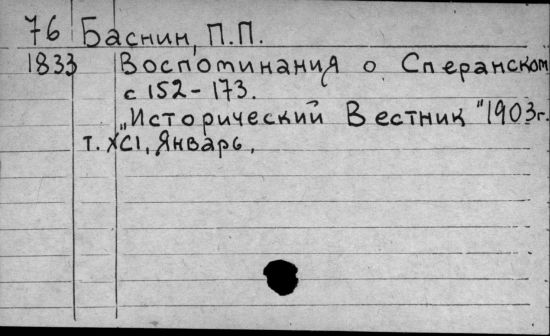 76 Баснин, П.П.
1833 Воспоминания о Сперанском
с 152-173.
„Исторический Вестник" 1903г.
т. XCI, Январь,